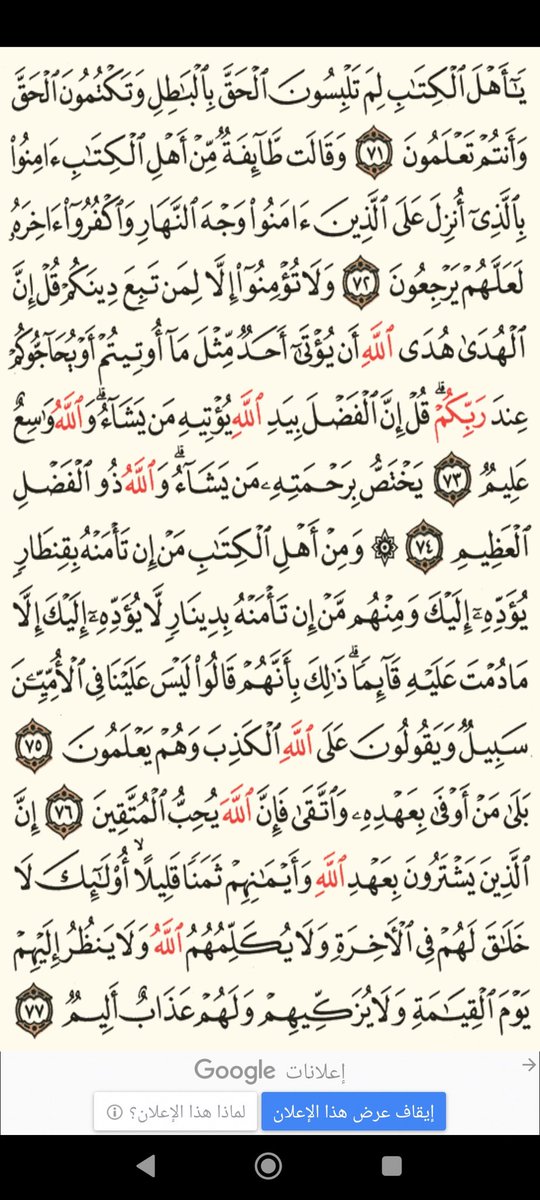 يَٰٓأَهۡلَ ٱلۡكِتَٰبِ لِمَ تَلۡبِسُونَ ٱلۡحَقَّ بِٱلۡبَٰطِلِ وَتَكۡتُمُونَ ٱلۡحَقَّ
وَأَنتُمۡ تَعۡلَمُونَ ٧١ وَقَالَت طَّآئِفَةٞ مِّنۡ أَهۡلِ ٱلۡكِتَٰبِ ءَامِنُواْ
بِٱلَّذِيٓ أُنزِلَ عَلَى ٱلَّذِينَ ءَامَنُواْ وَجۡهَ ٱلنَّهَارِ وَٱكۡفُرُوٓاْ ءَاخِرَهُۥ
لَعَلَّهُمۡ يَرۡجِعُونَ ٧٢ وَلَا تُؤۡمِنُوٓاْ إِلَّا لِمَن تَبِعَ دِينَكُمۡ قُلۡ إِنَّ
ٱلۡهُدَىٰ هُدَى ٱللَّهِ أَن يُؤۡتَىٰٓ أَحَدٞ مِّثۡلَ مَآ أُوتِيتُمۡ أَوۡ يُحَآجُّوكُمۡ
عِندَ رَبِّكُمۡۗ قُلۡ إِنَّ ٱلۡفَضۡلَ بِيَدِ ٱللَّهِ يُؤۡتِيهِ مَن يَشَآءُۗ وَٱللَّهُ وَٰسِعٌ
عَلِيمٞ ٧٣ يَخۡتَصُّ بِرَحۡمَتِهِۦ مَن يَشَآءُۗ وَٱللَّهُ ذُو ٱلۡفَضۡلِ
ٱلۡعَظِيمِ ٧٤ ۞ وَمِنۡ أَهۡلِ ٱلۡكِتَٰبِ مَنۡ إِن تَأۡمَنۡهُ بِقِنطَارٖ
يُؤَدِّهِۦٓ إِلَيۡكَ وَمِنۡهُم مَّنۡ إِن تَأۡمَنۡهُ بِدِينَارٖ لَّا يُؤَدِّهِۦٓ إِلَيۡكَ إِلَّا
مَا دُمۡتَ عَلَيۡهِ قَآئِمٗاۗ ذَٰلِكَ بِأَنَّهُمۡ قَالُواْ لَيۡسَ عَلَيۡنَا فِي ٱلۡأُمِّيِّـۧنَ
سَبِيلٞ وَيَقُولُونَ عَلَى ٱللَّهِ ٱلۡكَذِبَ وَهُمۡ يَعۡلَمُونَ ٧٥
بَلَىٰ مَنۡ أَوۡفَىٰ بِعَهۡدِهِۦ وَٱتَّقَىٰ فَإِنَّ ٱللَّهَ يُحِبُّ ٱلۡمُتَّقِينَ ٧٦ إِنَّ
ٱلَّذِينَ يَشۡتَرُونَ بِعَهۡدِ ٱللَّهِ وَأَيۡمَٰنِهِمۡ ثَمَنٗا قَلِيلًا ۙ أُوْلَٰٓئِكَ لَا
خَلَٰقَ لَهُمۡ فِي ٱلۡأٓخِرَةِ وَلَا يُكَلِّمُهُمُ ٱللَّهُ وَلَا يَنظُرُ إِلَيۡهِمۡ
يَوۡمَ ٱلۡقِيَٰمَةِ وَلَا يُزَكِّيهِمۡ وَلَهُمۡ عَذَابٌ أَلِيمٞ ٧٧
إعلانات Google
إيقاف عرض هذا الإعلان
لماذا هذا الإعلان؟